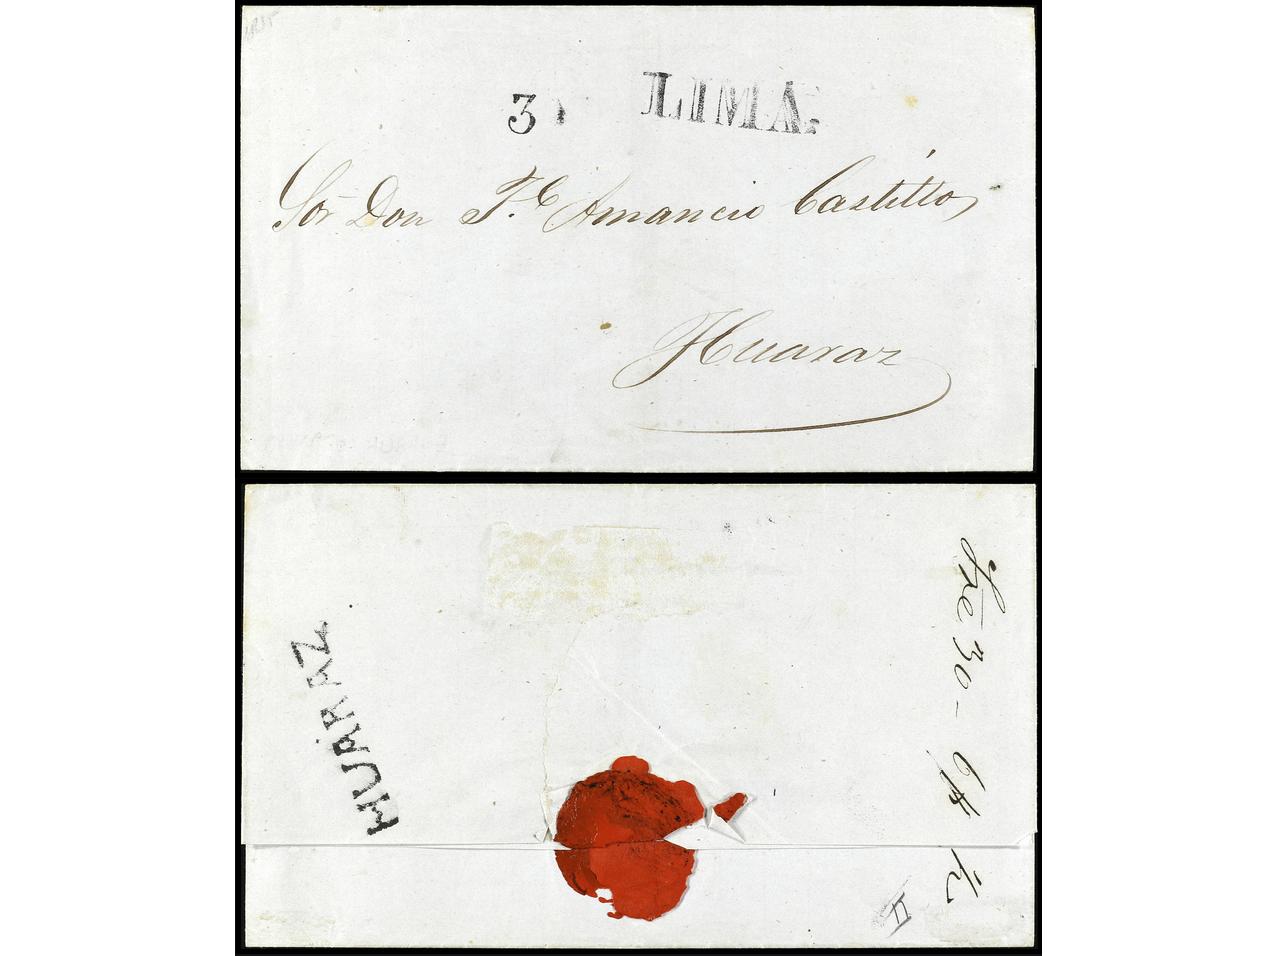 3 LIMA.
Sor Don J.e Amancio Castillo
Huaraz
HUARAZ
30 -
II